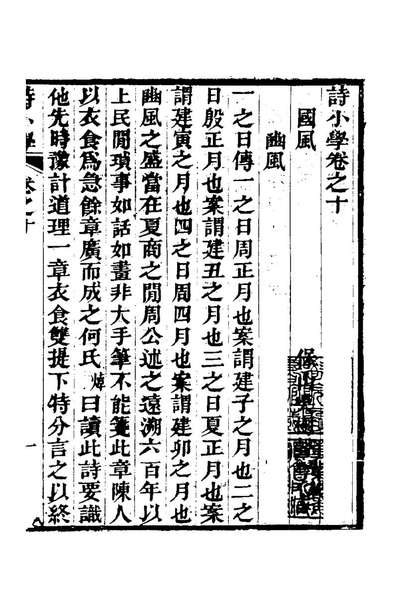 詩小學卷之十
國風
豳風
一之日傳一之日周正月也案謂建子之月也二之
日殷正月也案謂建丑之月也三之日夏正月也案
謂建寅之月也四之日周四月也案謂建卯之月也
豳風之盛當在夏商之閒周公述之遠溯六百年以
上民閒瑣事如話如畫非大手筆不能箋此章陳人
以衣食爲急餘章廣而成之何氏焯曰讀此詩要識
他先時豫計道理一章衣食雙提下特分言之以終
詩小學
卷之十
一